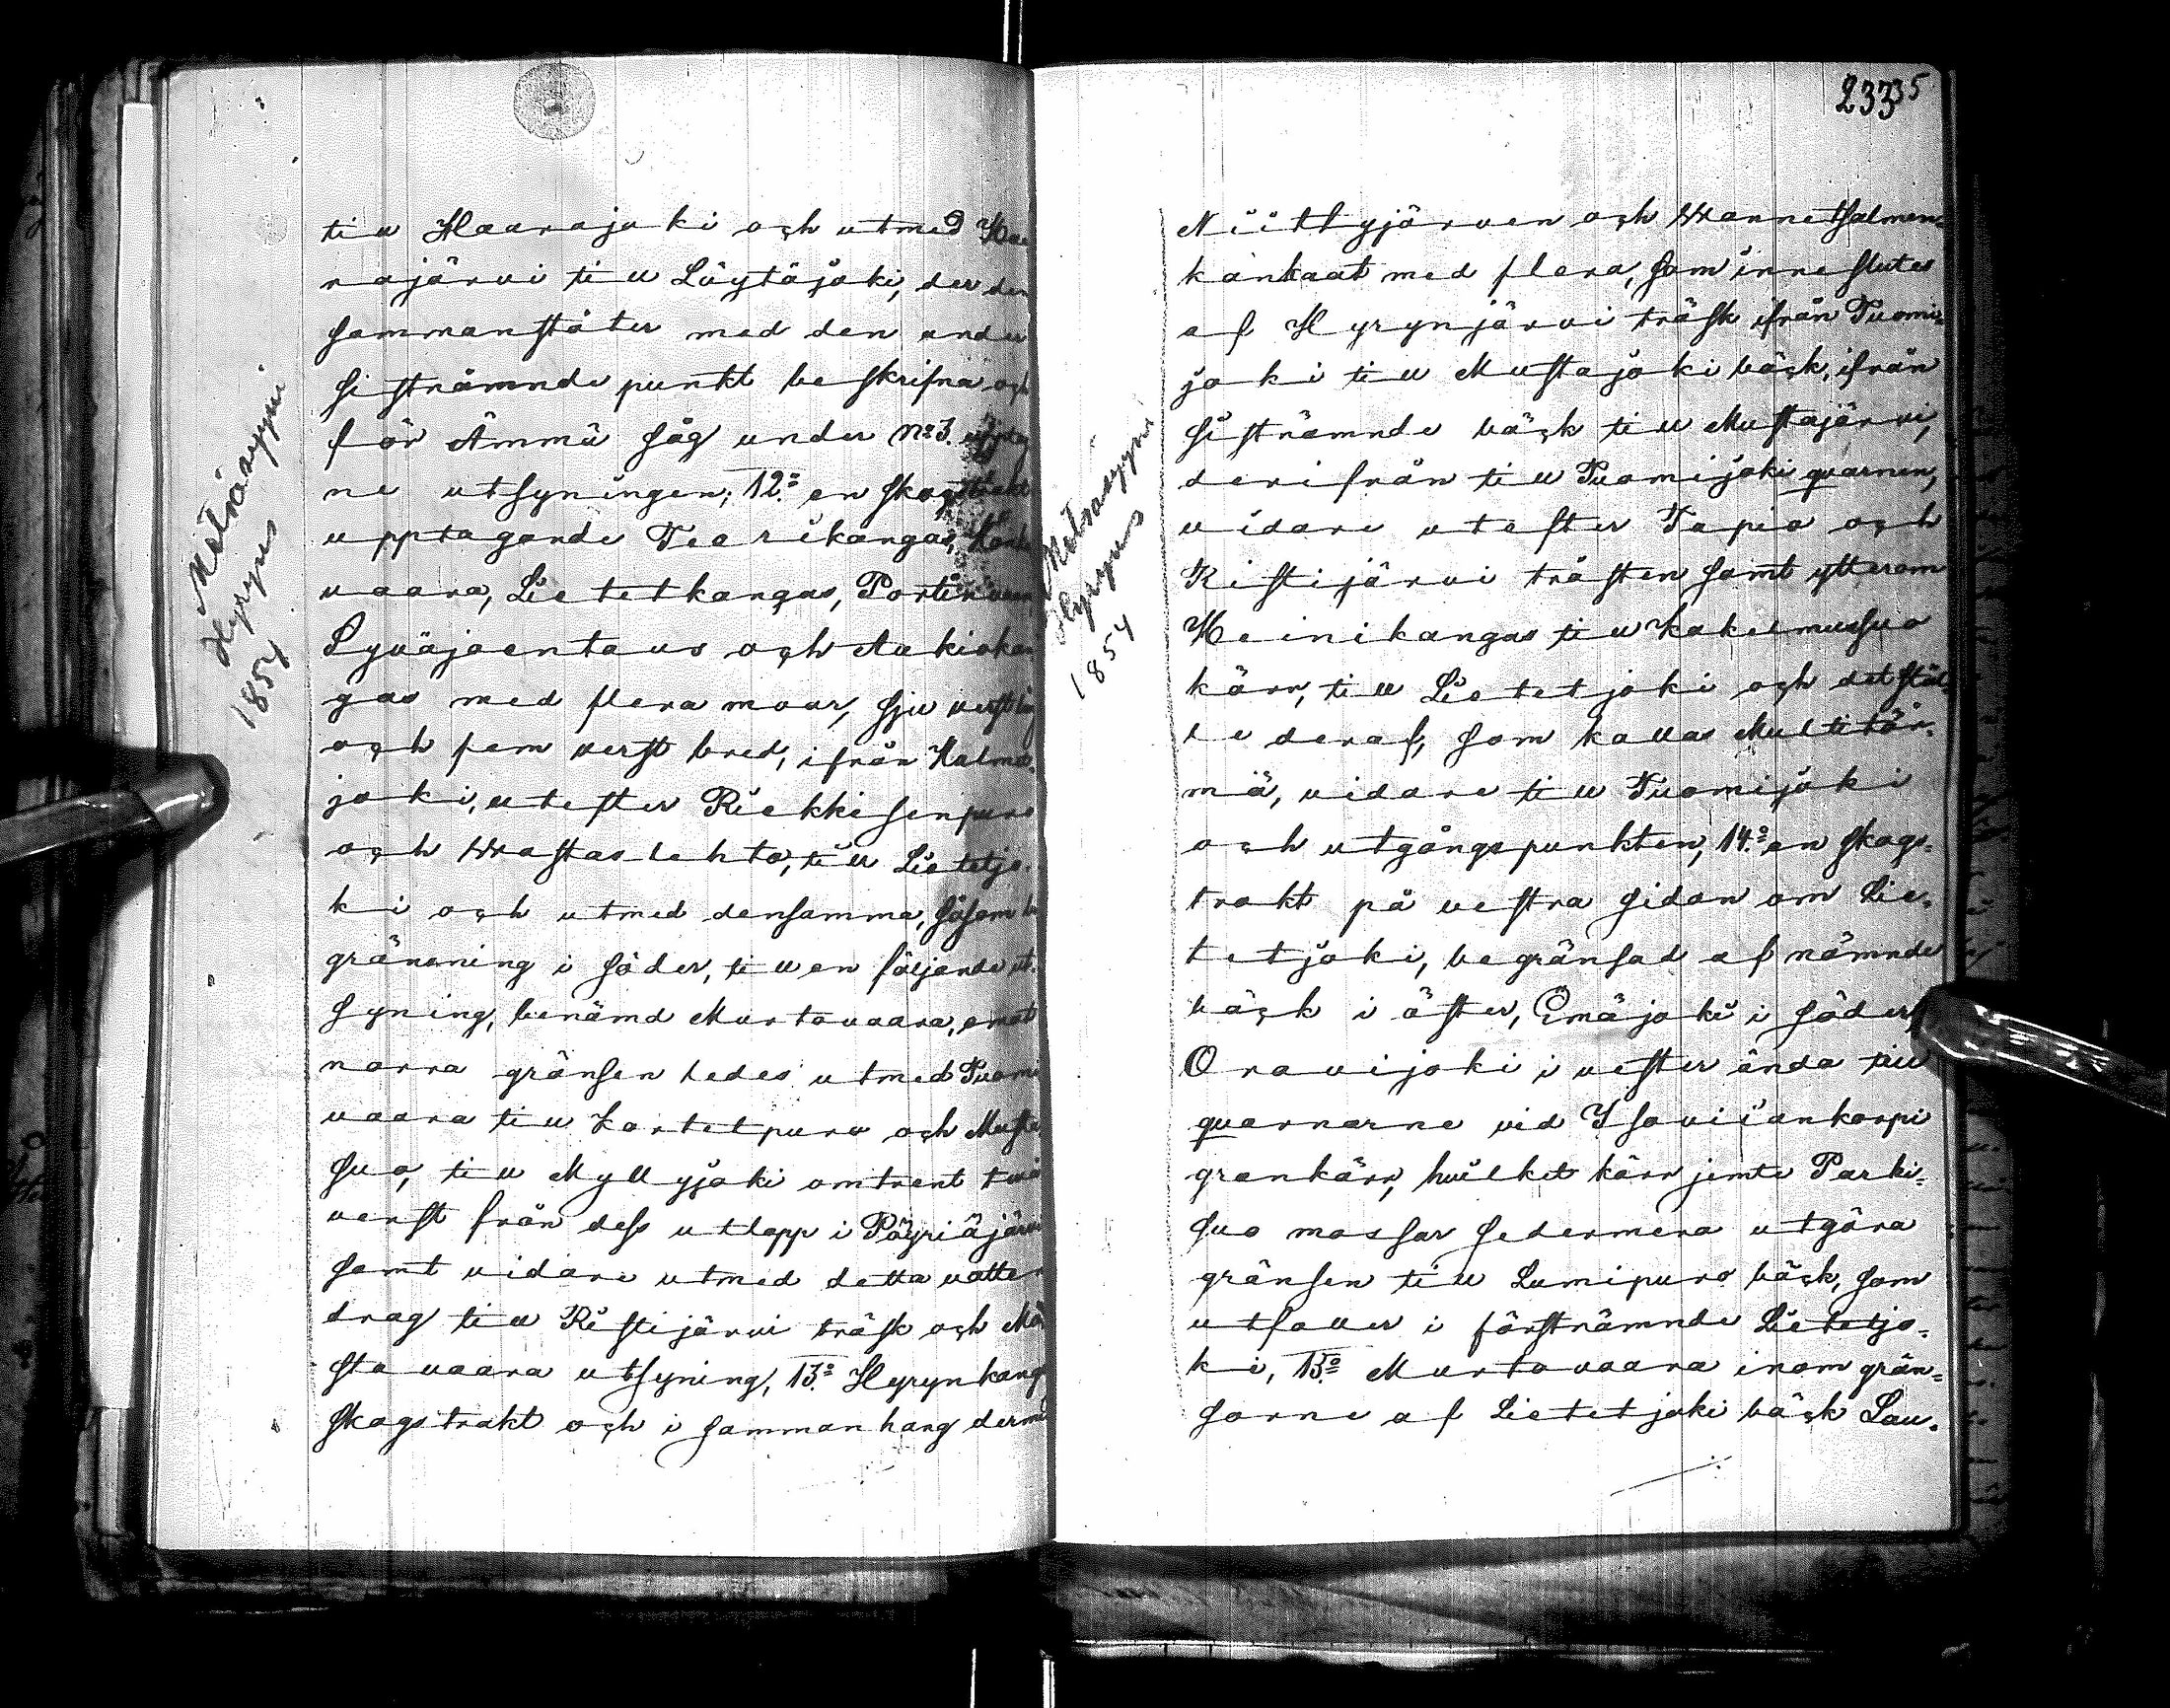 till Haarajoki och utmed Haa
rajärvi till Löytäjoki, der den
sammanstöter med den under
sistnämnde punkt beskrifna och
för Ämmä såg under No 3. upptag
ne utsyningen; 12:o en skogstrakt
upptagande Tearikangas,
vaara, Lietetkangas, Portinvaara,
Syväjoentaus och Aukiokan
gas med flera moar, sju verst lång
och fem verst bred, ifrån Kalmo-
joki, utefter Riekkisenpuro
och Wrastaslehto, till Lietetjo-
ki och utmed densamma, såsom be
gränsning i söder, till en följande ut-
syning, benämd Murtovaara, emot
norra gränsen ledes utmed Tuomi
vaara till Kortetpuro och Musta
suo, till Myllyjoki omtrent två
verst från dess utlopp i Pöyriäjärvi
samt vidare utmed detta vatten
drag till Ristijärvi träsk och Mu
stavaara utsyning, 13:o Hyrynkangas
skogstrakt och i sammanhang dermed
Metsäsyyni
HyrynS
1854
233 35
Niittyjärven och Wannetsalmen-
kankaat med flera, som inneslutes
af Hyrynjärvi träsk ifrån Tuomi-
joki till Mustajoki bäck, ifrån
sistnämnde bäck till Mustajärvi,
derifrån till Tuomijoki quarnen,
vidare utefter Tapio och
Ristijärvi träsken samt ytterom
Heinikangas till Kakelmussuo
kärr, till Lietetjoki och det stäl-
le deraf, som kallas Multitör-
mä, vidare till Tuomijoki
och utgångspunkten, 14:o en skogs-
trakt på vestra sidan om Lie-
tetjoki, begränsad af nämnde
bäck i öster, Emäjoki i söder,
Oravijoki i vester ända till
quarnarne vid Isoviiankorpi
grankärr, hvilket kärr jemte Parki-
suo mossar sedermera utgöra
gränsen till Lumipuro bäck, som
utfaller i förstnämnde Lietetjo-
ki, 15:o Murtovaara inom grän-
sorne af Lietetjoki bäck Lau-
Metsäsyyni
Hyryns
1854